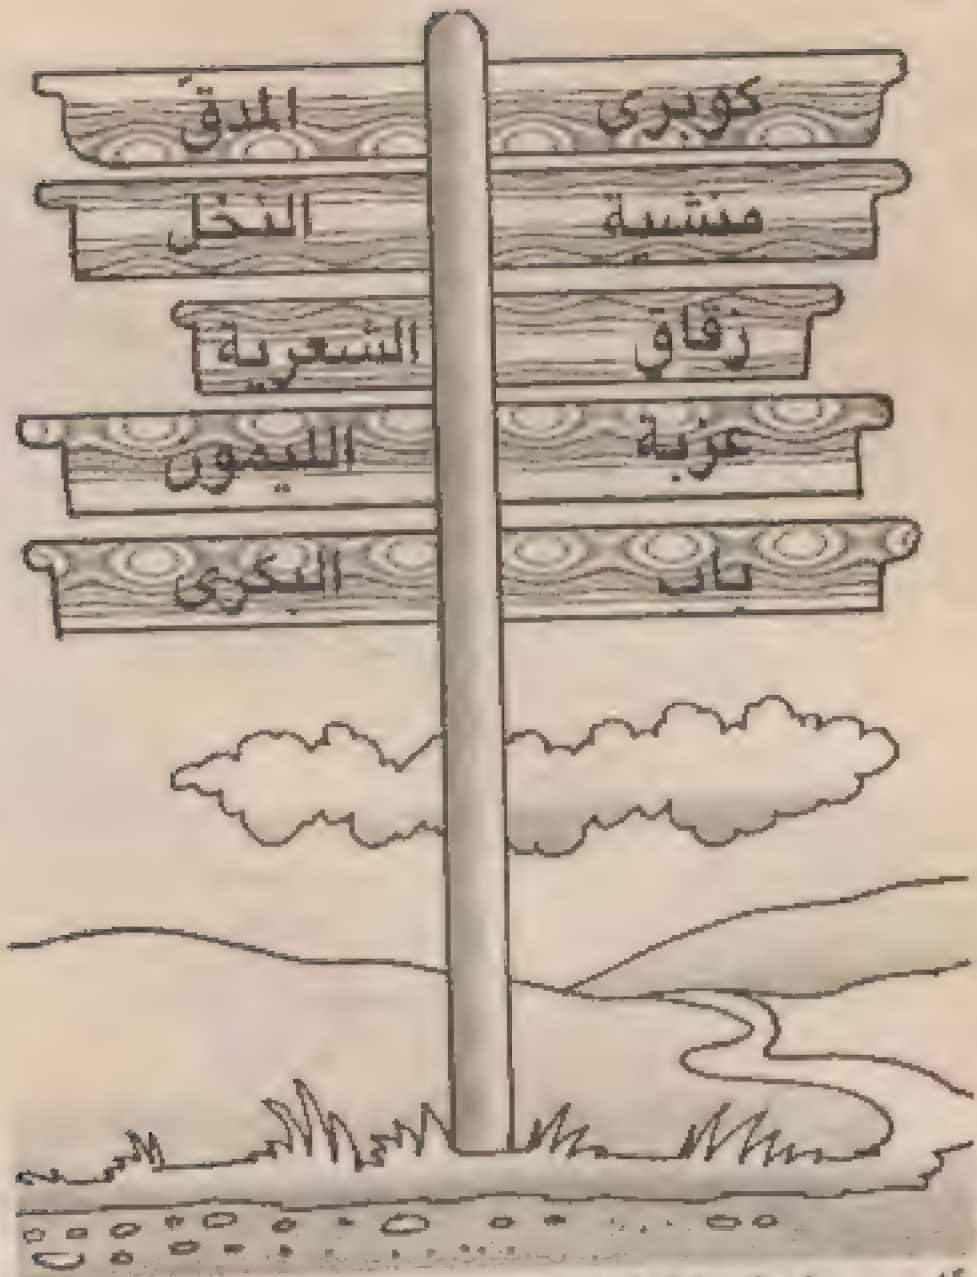 كوبرى المدق
منشية النخل
زقاق الشعرية
عزبة الليمون
باب البكرى